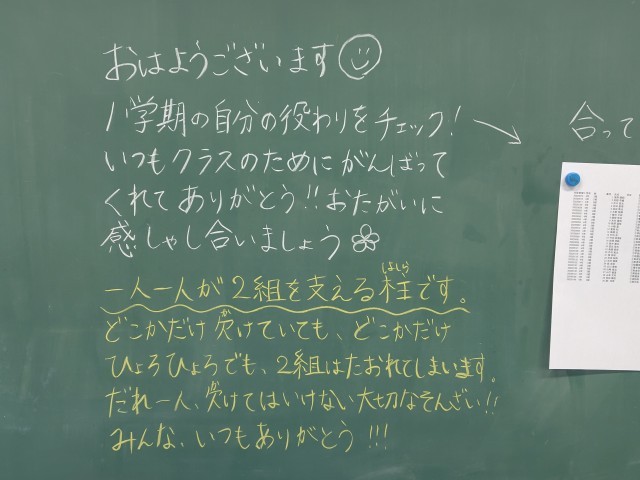 おはようございます
1学期の自分の役わりをチェック!
合って
いつもクラスのためにがんばって
くれてありがとう!!おたがいに
感しゃし合いましょう
一人一人が2組を支える柱です。
はしら
どこかだけ欠けていても、どこかだけ
か
ひょろひょろでも、2組はたおれてしまいます。
だれ一人、欠けてはいけない大切なそんざい!!
みんな、いつもありがとう!!!